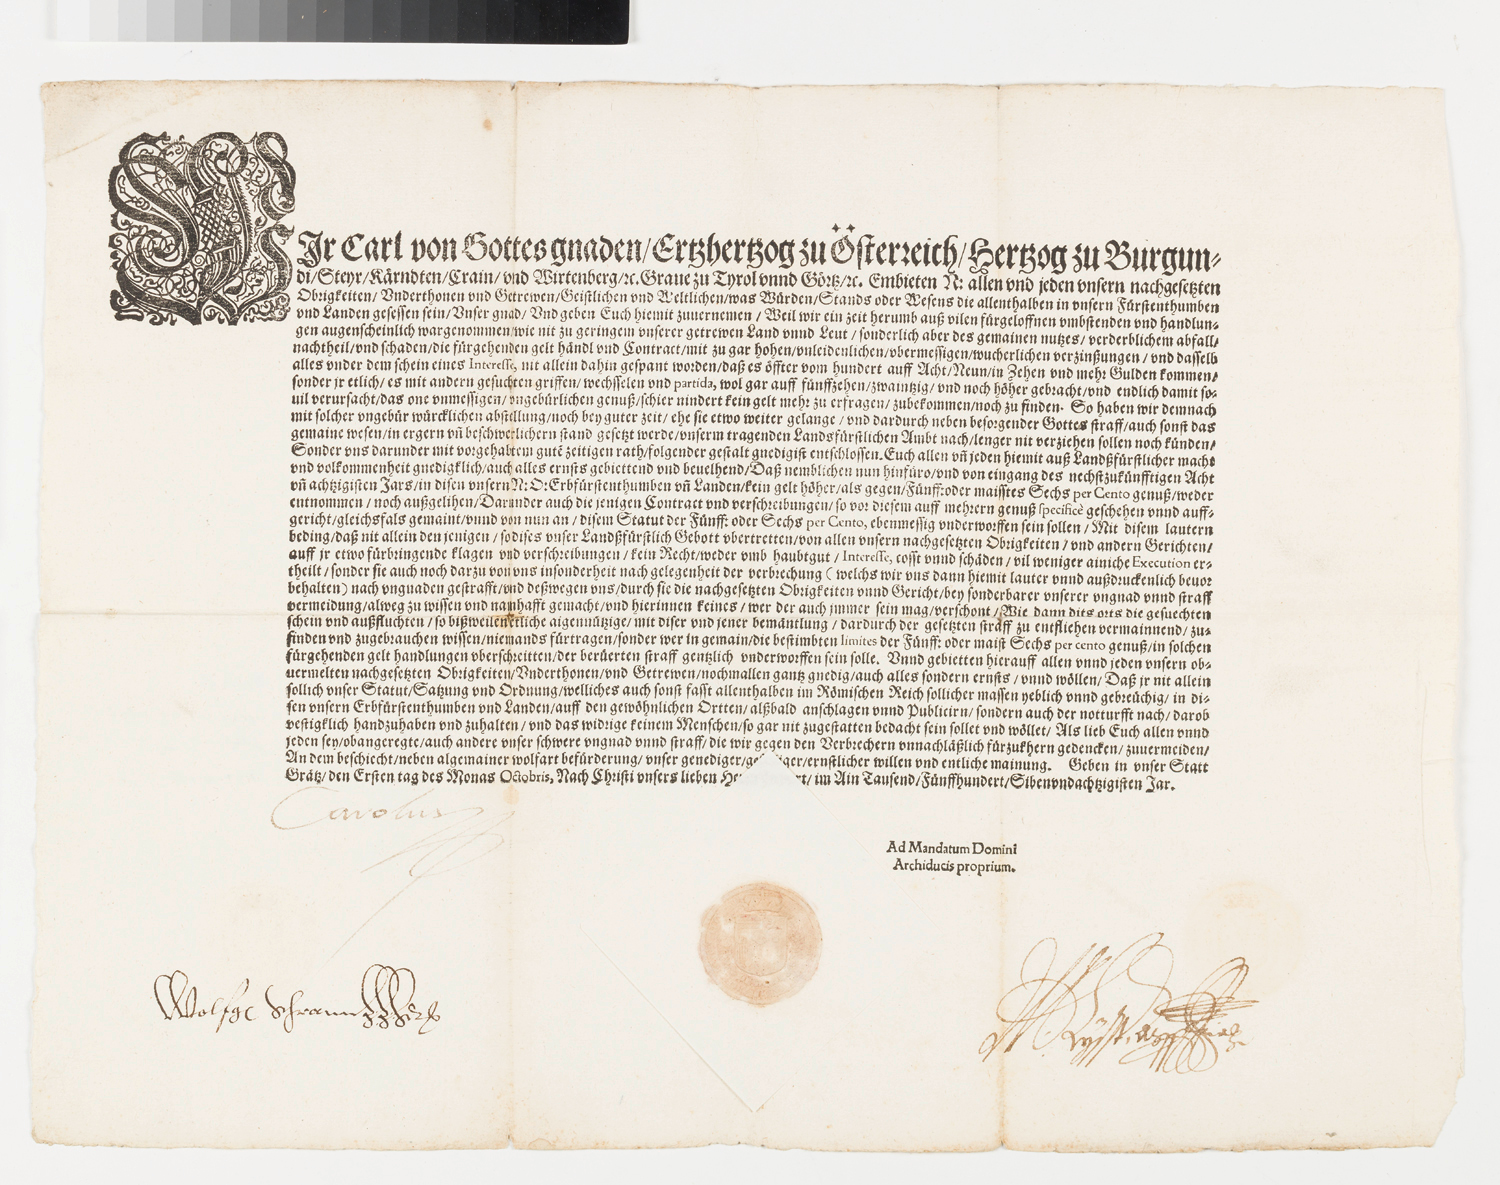 WIr Carl von Gottes gnaden/Ertzhertzog zu Österreich/Hertzog zu Burgun-
di/Steyr/Kärndten/Crain/vnd Wirtenberg/ꝛc. Graue zu Tyrol vnnd Görtz/ꝛc. Embieten N: allen vnd jeden vnsern nachgesetzten
Obrigkeiten/Vnderthonen vnd Getrewen/Geistlichen vnd Weltlichen/was Würden/Stands oder Wesens die allenthalben in vnsern Fürstenthumben
vnd Landen gesessen sein/Vnser gnad/Vnd geben Euch hiemit zuuernemen/Weil wir ein zeit herumb auß vilen fürgeloffnen vmbstenden vnd handlun-
gen augenscheinlich wargenommen/wie nit zu geringem vnserer getrewen Land vnnd Leut/sonderlich aber des gemainen nutzes/verderblichem abfall/
nachtheil/vnd schaden/die fürgehenden gelt händl vnd Contract/mit zu gar hohen/vnleidenlichen/vbermessigen/wucherlichen verzinßungen/vnd dasselb
alles vnder dem schein eines Interesse, nit allein dahin gespant worden/daß es öffter vom hundert auff Acht/Neun/in Zehen vnd mehr Gulden kommen/
sonder jr etlich/es mit andern gesuchten griffen/wechsselen vnd partida, wol gar auff fünffzehen/zwaintzig/vnd noch höher gebracht/vnd endlich damit so-
uil verursacht/das one vnmessigen/vngebürlichen genuß/schier nindert kein gelt mehr zu erfragen/zubekommen/noch zu finden. So haben wir demnach
mit solcher vngebür würcklichen abstellung/noch bey guter zeit/ehe sie etwo weiter gelange/vnd dardurch neben besorgender Gottes straff/auch sonst das
gemaine wesen/in ergern vñ beschwerlichern stand gesetzt werde/vnserm tragenden Landsfürstlichen Ambt nach/lenger nit verziehen sollen noch künden/
Sonder vns darunder mit vorgehabtem gutē zeitigen rath/folgender gestalt gnedigist entschlossen. Euch allen vñ jeden hiemit auß Landßfürstlicher macht
vnd volkommenheit gnedigklich/auch alles ernsts gebiettend vnd beuelhend/Daß nemblichen nun hinfüro/vnd von eingang des nechstzukünfftigen Acht
vñ achtzigisten Jars/in disen vnsern N: O: Erbfürstenthumben vñ Landen/kein gelt höher/als gegen/Fünff: oder maisstes Sechs per Cento genuß/weder
entnommen/noch außgelihen/Darunder auch die jenigen Contract vnd verschreibungen/so vor diesem auff mehrern genuß specificè geschehen vnnd auff-
gericht/gleichsfals gemaint/vnnd von nun an/disem Statut der Fünff: oder Sechs per Cento, ebenmessig vnderworffen sein sollen/Mit disem lautern
beding/daß nit allein den jenigen/so dises vnser Landßfürstlich Gebott vbertretten/von allen vnsern nachgesetzten Obrigkeiten/vnd andern Gerichten/
auff jr etwo fürbringende klagen vnd verschreibungen/kein Recht/weder vmb haubtgut/Interesse, cosst vnnd schäden/vil weniger ainiche Execution er-
theilt/sonder sie auch noch darzu von vns insonderheit nach gelegenheit der verbrechung (welchs wir vns dann hiemit lauter vnnd außdruckenlich beuor
behalten) nach vngnaden gestrafft/vnd deßwegen vns/durch sie die nachgesetzten Obrigkeiten vnnd Gericht/bey sonderbarer vnserer vngnad vnnd straff
vermeidung/alweg zu wissen vnd namhafft gemacht/vnd hierinnen keines/wer der auch jmmer sein mag/verschont/Wie dann dits orts die gesuechten
schein vnd außfluchten/so bißweilen etliche aigennützige/mit diser vnd jener bemäntlung/dardurch der gesetzten straff zu entfliehen vermainnend/zu-
finden vnd zugebrauchen wissen/niemands fürtragen/sonder wer in gemain/die bestimbten limites der Fünff: oder maist Sechs per cento genuß/in solchen
fürgehenden gelt handlungen vberschreitten/der berüerten straff gentzlich vnderworffen sein solle. Vnnd gebietten hierauff allen vnnd jeden vnsern ob-
uermelten nachgesetzten Obrigkeiten/Vnderthonen/vnd Getrewen/nochmallen gantz gnedig/auch alles sondern ernsts/vnnd wöllen/Daß jr nit allein
sollich vnser Statut/Satzung vnd Ordnung/welliches auch sonst fasst allenthalben im Römischen Reich sollicher massen yeblich vnnd gebreüchig/in di-
sen vnsern Erbfürstenthumben vnd Landen/auff den gewöhnlichen Ortten/alßbald anschlagen vnnd Publiciern/sondern auch der notturfft nach/darob
vestigklich handzuhaben vnd zuhalten/vnd das widrige keinem Menschen/so gar nit zugestatten bedacht sein sollet vnd wöllet/Als lieb Euch allen vnnd
jeden sey/obangeregte/auch andere vnser schwere vngnad vnnd straff/die wir gegen den Verbrechern vnnachläßlich fürzukhern gedencken/zuuermeiden/
An dem beschiecht/neben algemainer wolfart befürderung/vnser genediger/ernstlicher willen vnd entliche mainung. Geben in vnser Statt
Grätz/den Ersten tag des Monas Octobris, Nach Christi vnsers lieben im Ain Tausend/Fünffhundert/Sibenvndachtzigisten Jar.
Carolus
Ad Mandatum Domini
Archiducis proprium.
Wolfg